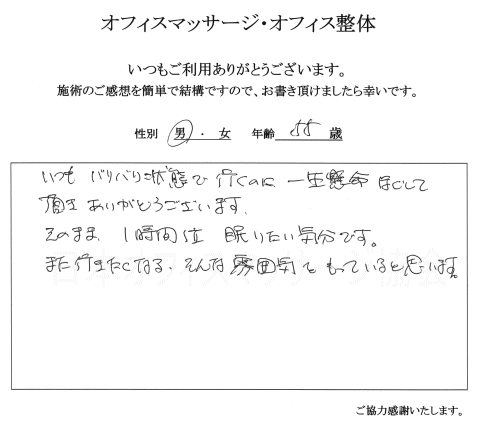 オフィスマッサージ・オフィス整体
いつもご利用ありがとうございます。
施術のご感想を簡単で結構ですので、お書き頂けましたら幸いです。
性別 男 ・ 女 年齢 55 歳
いつも バリバリ状態で 行くのに 一生懸命 ほぐして
頂き ありがとうございます。
そのまま 1時間位 眠りたい気分です。
また行きたくなる、そんな雰囲気を もっていると思います。
ご協力感謝いたします。